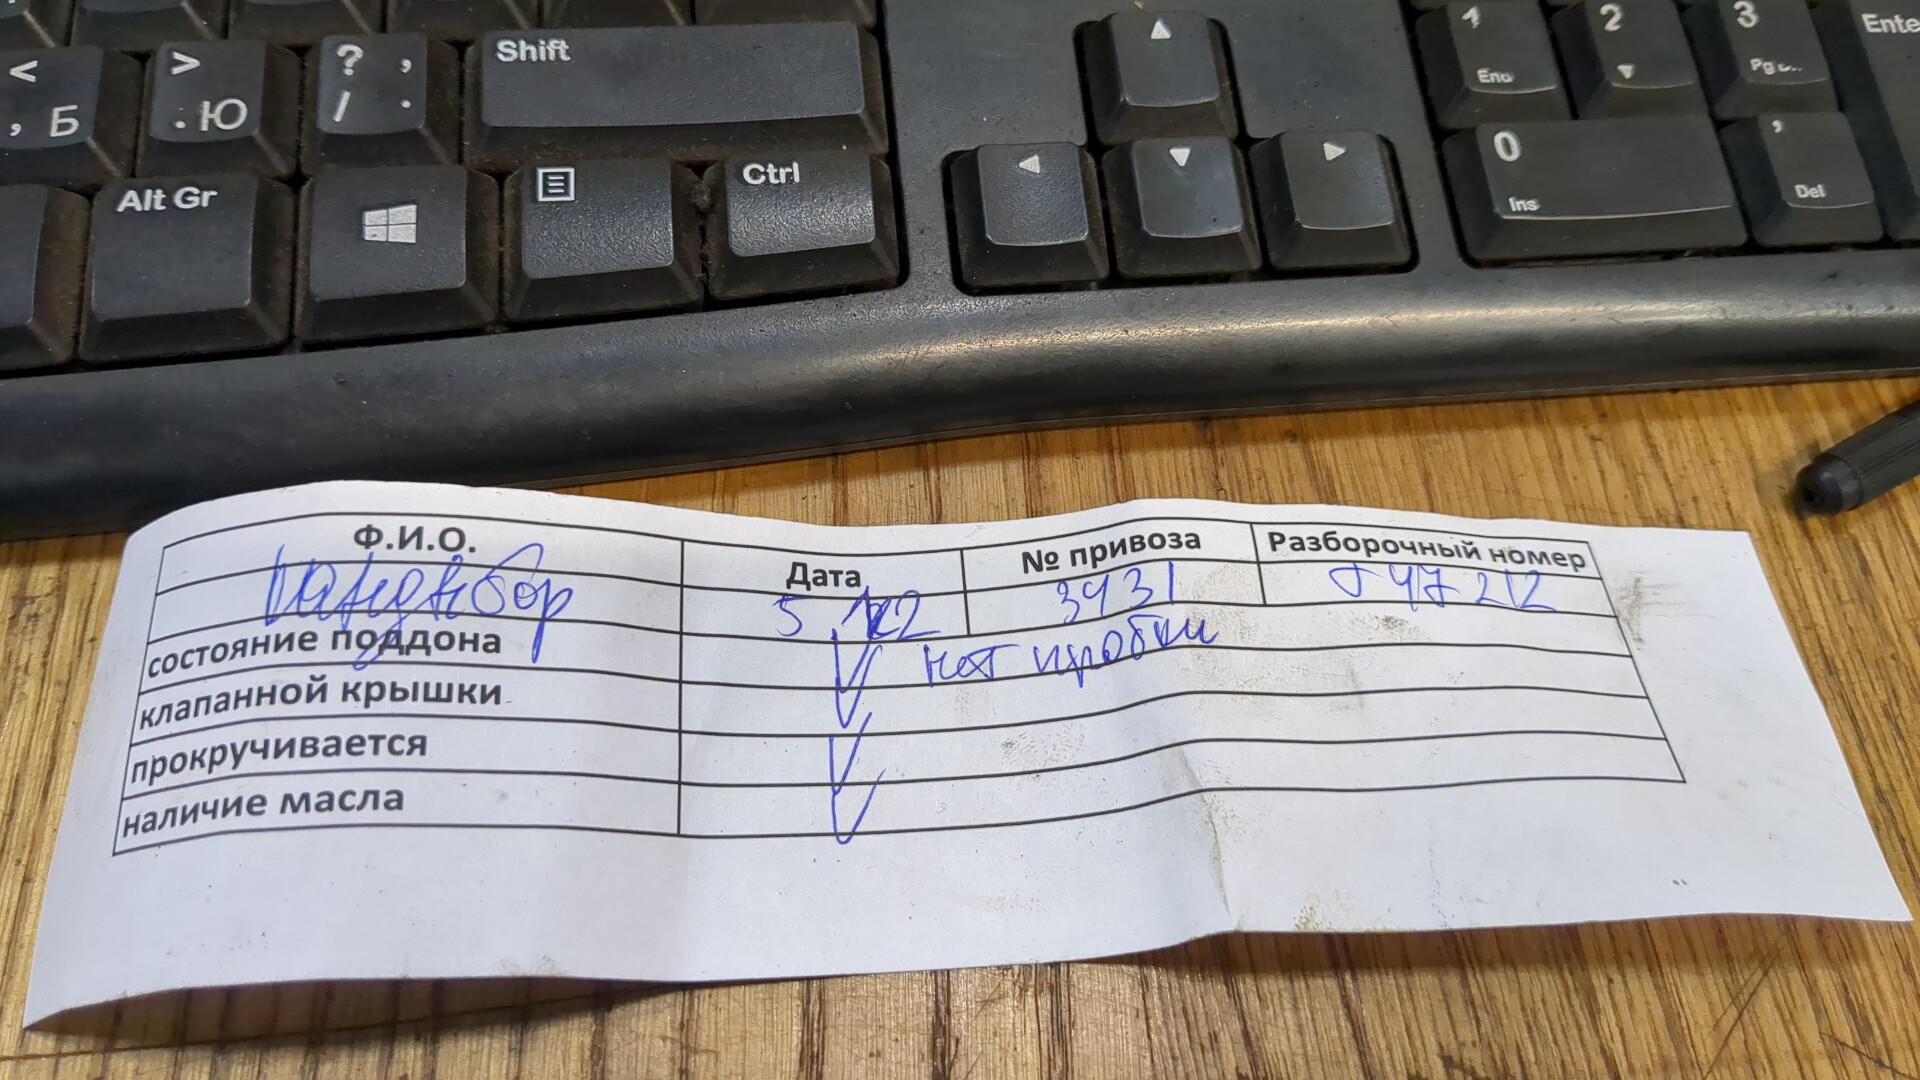 < , Б
> . Ю
? , / .
Shift
1 End
2
3 Pg
Ente
Alt Gr
Ctrl
0 Ins
, Del
Ф.И.О. Дата № привоза Разборочный номер
3431 47212
состояние поддона нет пробки
клапанной крышки
прокручивается
наличие масла